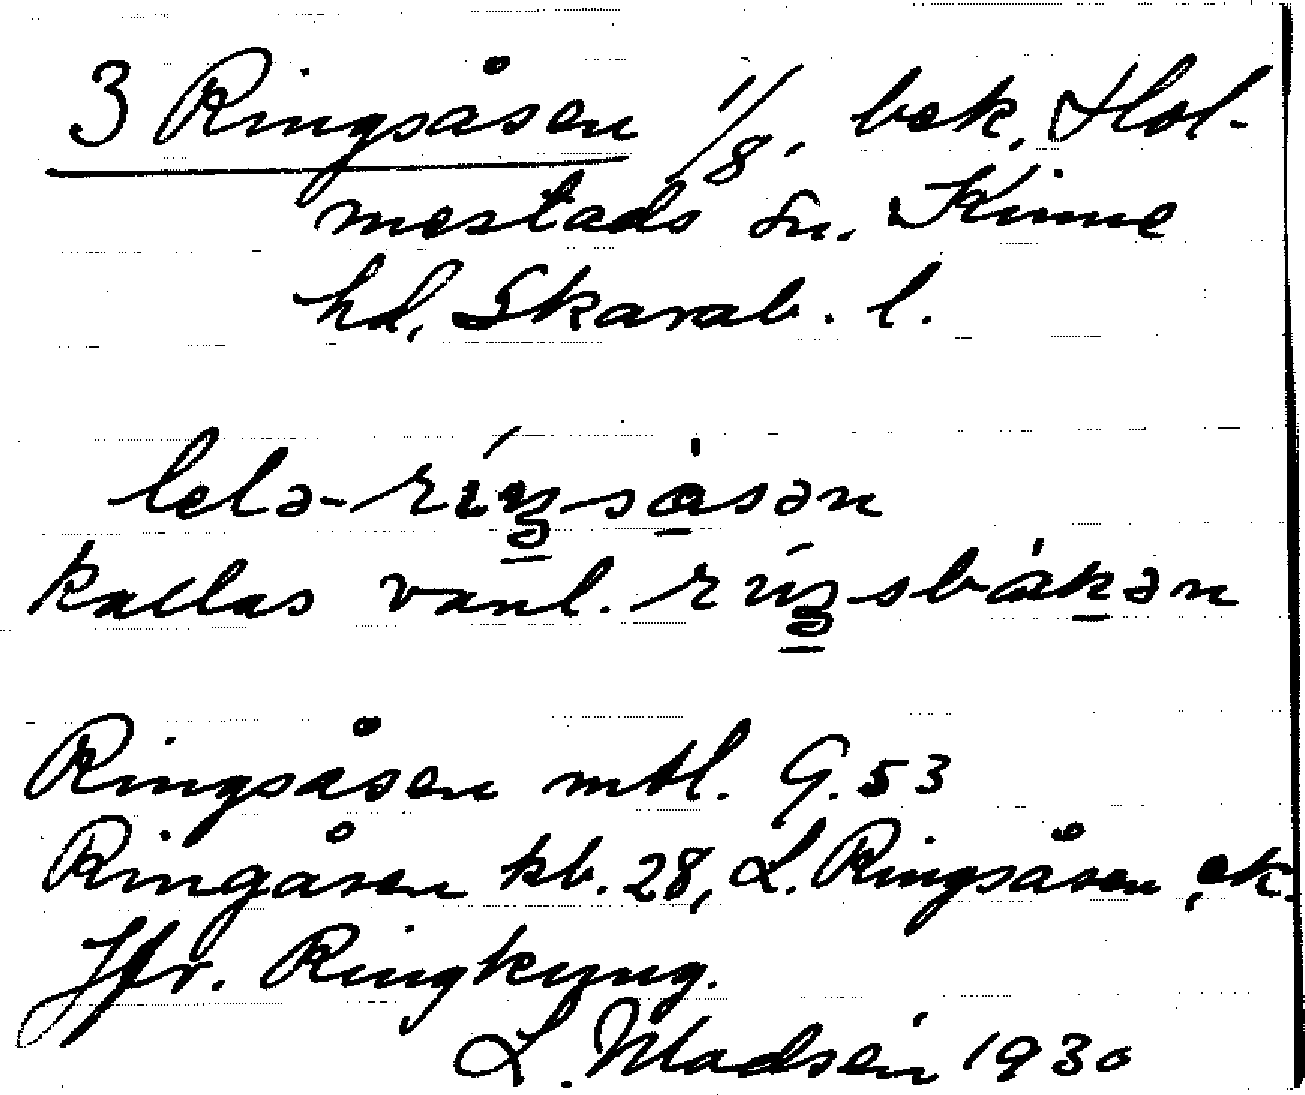 3 Ringsåsen 1/8, bek. Hol-
mestads sn. Kinne
hd, Skarab. l.
lelə-ríŋsåsən
kallas vanl. ríŋsbákən
Ringsåsen mtl. G. 53
Ringåsen kb. 28, L. Ringsåsen, ek.
Jfr. Ringkyng.
L. Madsén 1930